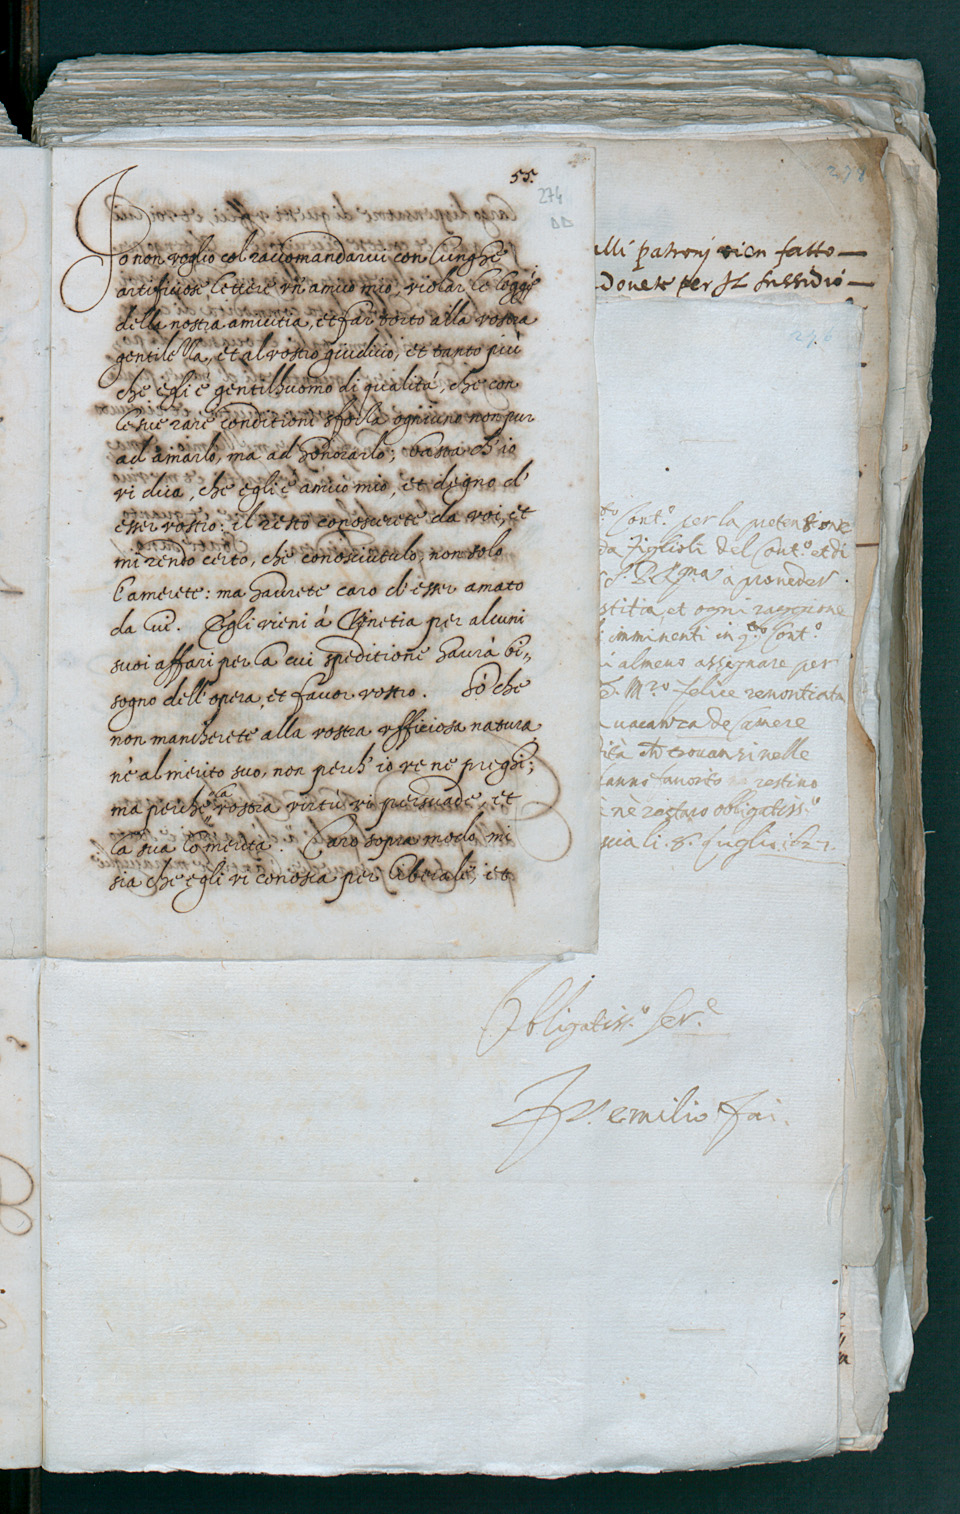 55.
274
278
Io non voglio col raccomandarvi con lunghe
artificiose lettere un amico mio, violar le leggi
della nostra amicitia, et far torto alla vostra
gentilezza, et al vostro giudicio; et tanto più
che egli è gentilhuomo di qualità, che con
le sue rare conditioni sforza ogniuno non pur
ad amarlo, ma ad honorarlo; basta ch'io
vi dica, che egli è amico mio, et degno d'
esser vostro: il resto conoscerete da voi, et
mi rendo certo, che conosciutolo, non solo
l'amerete: ma havrete caro d'esser amato
da lui. Egli viene à Venetia per alcuni
suoi affari per la cui speditione havrà bi„
sogno dell'opera, et favor vostro. Sò che
non mancherete alla vostra ufficiosa natura
nè al merito suo, non perch'io ve ne preghi;
ma perche la vostra virtù vi persuade, et
la sua lo merita. Caro sopra modo mi
sia che egli vi conosca per liberale, et
alli patronj vien fatto
Dovete per Il sussidio
276
Cont.º per la pretensione
figlioli del Cont.º et di
à proveder
et ogni raggione
imminenti in q.to Cont.º
almeno assignare per
M.ro Felice renontiata
vacanza de Camere
trovansi nelle
favorito restino
nè restaro obligatiss.º
li. 8. luglio 1621.
Obligatiss.º Ser.e
P. emilio Fai.